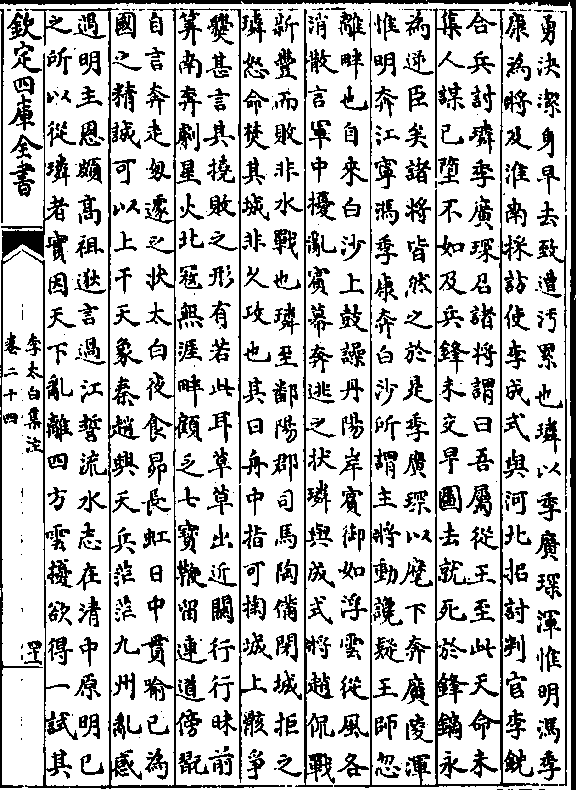 勇決潔身早去致遭汚累也璘以季廣琛渾惟明馮季
康為將及淮南採訪使李成式與河北招討判官李銑
合兵討璘季廣琛召諸將謂曰吾屬從王至此天命未
集人謀已墮不如及兵鋒未交早圖去就死於鋒鏑永
為逆臣矣諸將皆然之於是季廣琛以麾下奔廣陵渾
惟明奔江寧馮季康奔白沙所謂主將動讒疑王師忽
離畔也自來白沙上鼓譟丹陽岸賓御如浮雲從風各
消散言軍中擾亂賓幕奔逃之状璘與成式將趙侃戰
新豐而敗非水戰也璘至鄱陽郡司馬陶備閉城拒之
璘怒命焚其城非久攻也其曰舟中指可掬城上骸争
㸑甚言其撓敗之形有若此耳草草出近關行行昧前
算南奔劇星火北冦無涯畔顧乏七寶鞭留連道傍翫
自言奔走匆遽之状太白夜食昴長虹日中貫喻已為
國之精誠可以上干天象秦趙興天兵茫茫九州亂感
遇明主恩頗高祖逖言過江誓流水志在清中原明已
之所以從璘者實因天下亂離四方雲擾欲得一試其
欽定四庫全書
李太白集注
卷二十四